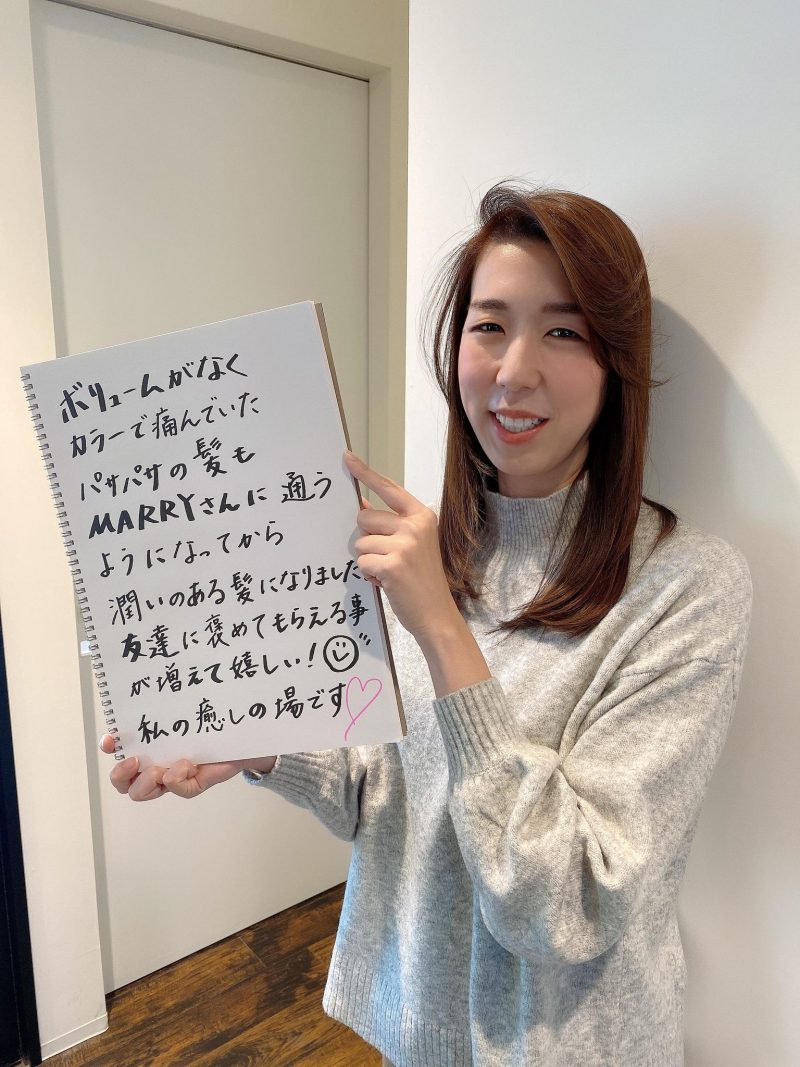 ボリュームがなく
カラーで痛んでいた
パサパサの髪も
MARRYさんに通う
ようになってから
潤いのある髪になりました
友達に褒めてもらえる事
が増えて嬉しい!
私の癒しの場です